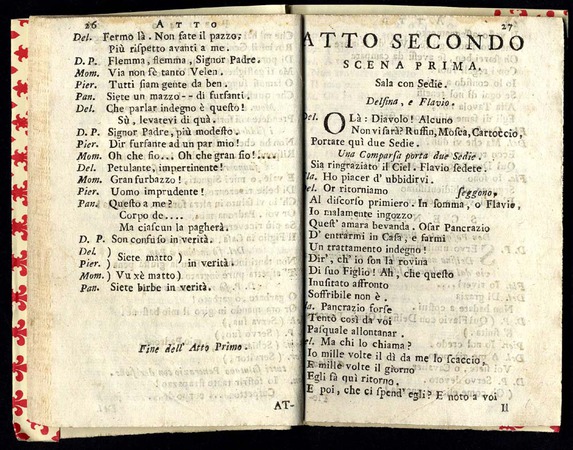 26 ATTO
Del. Fermo là. Non fate il pazzo;
Più rispetto avanti a me.
D. P. Flemma, flemma, Signor Padre.
Mom. Via non sè tanto Velen.
Pier. Tutti siam gente da ben.
Pan. Siete un mazzo-- di furfanti.
Del. Che parlar indegno è questo!
Sù, levatevi di quà.
D. P. Signor Padre, più modesto.
Pier. Dir furfante ad un par mio!
Mom. Oh che fio... Oh che gran fio!....
Del. Petulante, impertinente!
Mom. Gran furbazzo!
Pier. Uomo imprudente!
Pan. Questo a me?
Corpo de....
Ma ciascun la pagherà.
D. P. Son confuso in verità.
Del. )
Siete matto ) in verità.
Pier. )
Mom. ) Vu xè matto )
Pan. Siete birbe in verità.
Fine dell' Atto Primo.
AT-
27
ATTO SECONDO
SCENA PRIMA.
Sala con Sedie.
Delfina, e Flavio.
Del. OLà: Diavolo! Alcuno
Non vi sarà? Ruffin, Mosca, Cartoccio,
Portate quì due Sedie.
Una Comparsa porta due Sedie.
Sia ringraziato il Ciel. Flavio sedete.
Fla. Ho piacer d' ubbidirvi.
Del. Or ritorniamo seggono,
Al discorso primiero. In somma, o Flavio,
Io malamente ingozzo
Quest' amara bevanda. Osar Pancrazio
D' entrarmi in Casa, e farmi
Un trattamento indegno!
Dir', ch' io son la rovina
Di suo Figlio! Ah, che questo
Inusitato affronto
Soffribile non è.
Fla. Pancrazio forse
Tentò così da voi
Pasquale allontanar.
Del. Ma chi lo chiama?
Io mille volte il dì da me lo scaccio,
E mille volte il giorno
Egli fà quì ritorno.
E poi, che ci spend' egli? E noto a voi
Il